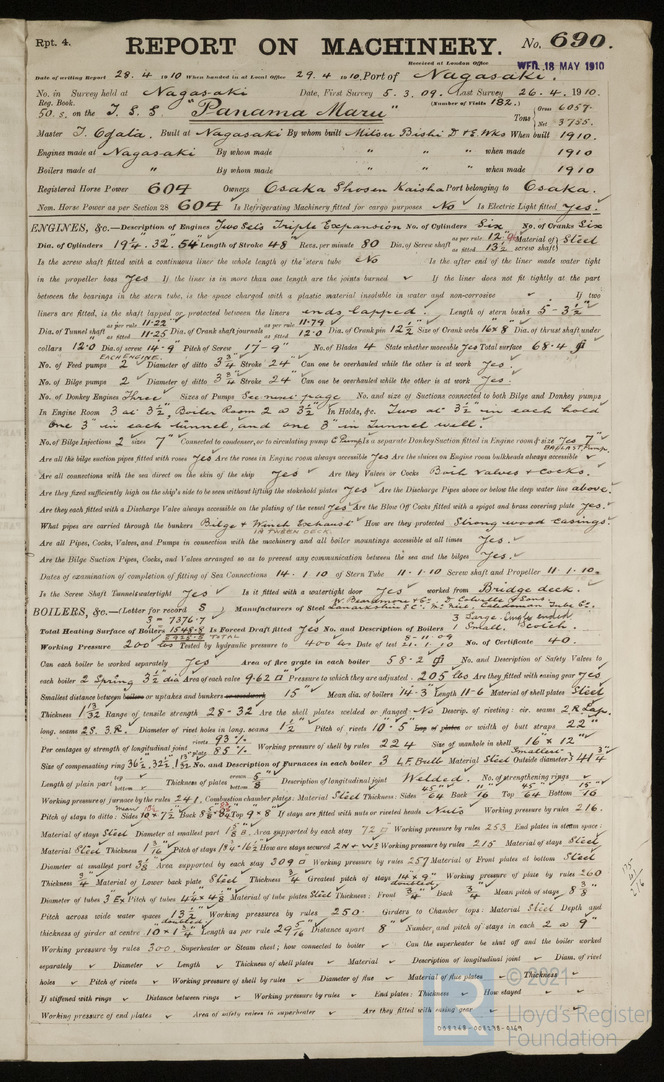 Rpt. 4.
REPORT ON MACHINERY. No. 690.
Received at London Office WED. 18 MAY 1910
Date of writing Report 28.4.1910 When handed in at Local Office 29.4.1910. Port of Nagasaki.
No. in Survey held at Nagasaki Date, First Survey 5.3.09. Last Survey 26.4.1910.
Reg. Book. (Number of Visits 182.)
50.S. on the T.S.S. "Panama Maru" Tons Gross 6057. Net 3755.
Master T. Ogata. Built at Nagasaki By whom built Mitsu Bishi D & E. Wks When built 1910.
Engines made at Nagasaki By whom made " " when made 1910
Boilers made at " By whom made " " when made 1910
Registered Horse Power 604 Owners Osaka Shosen Kaisha Port belonging to Osaka.
Nom. Horse Power as per Section 28 604 Is Refrigerating Machinery fitted for cargo purposes No Is Electric Light fitted Yes.
ENGINES, &c.—Description of Engines Two Sets Triple Expansion No. of Cylinders Six No. of Cranks Six
Dia. of Cylinders 19¾. 32. 54" Length of Stroke 48" Revs. per minute 80 Dia. of Screw shaft as per rule 12 as fitted 13½ Material of screw shaft Steel
Is the screw shaft fitted with a continuous liner the whole length of the stern tube No Is the after end of the liner made water tight
in the propeller boss Yes If the liner is in more than one length are the joints burned ✓ If the liner does not fit tightly at the part
between the bearings in the stern tube, is the space charged with a plastic material insoluble in water and non-corrosive ✓ If two
liners are fitted, is the shaft lapped or protected between the liners ends lapped. Length of stern bush 5-3½"
Dia. of Tunnel shaft as per rule 11.22 as fitted 11.25 Dia. of Crank shaft journals as per rule 11.79 as fitted 12.0 Dia. of Crank pin 12½ Size of Crank webs 16x8 Dia. of thrust shaft under
collars 12.0 Dia. of screw 14-9" Pitch of Screw 17-9" No. of Blades 4 State whether moveable Yes Total surface 68.4
EACH ENGINE.
No. of Feed pumps 2 Diameter of ditto 3¾ Stroke 24 Can one be overhauled while the other is at work Yes.
No. of Bilge pumps 2 Diameter of ditto 3¾ Stroke 24 Can one be overhauled while the other is at work Yes.
No. of Donkey Engines Three Sizes of Pumps See next page No. and size of Suctions connected to both Bilge and Donkey pumps
In Engine Room 3 at 3½", Boiler Room 2 @ 3½" In Holds, &c. Two at 3½" in each hold
One 3" in each tunnel, and one 3" in Tunnel well.
No. of Bilge Injections 2 sizes 7" Connected to condenser, or to circulating pump C. Pump Is a separate Donkey Suction fitted in Engine room & size Yes 7"
BALLAST PUMP.
Are all the bilge suction pipes fitted with roses Yes Are the roses in Engine room always accessible Yes Are the sluices on Engine room bulkheads always accessible ✓
Are all connections with the sea direct on the skin of the ship Yes Are they Valves or Cocks Both valves & cocks.
Are they fixed sufficiently high on the ship's side to be seen without lifting the stokehold plates Yes Are the Discharge Pipes above or below the deep water line above.
Are they each fitted with a Discharge Valve always accessible on the plating of the vessel Yes Are the Blow Off Cocks fitted with a spigot and brass covering plate Yes.
What pipes are carried through the bunkers Bilge & Winch Exhaust How are they protected Strong wood casings.
IN TWEEN DECK.
Are all Pipes, Cocks, Valves, and Pumps in connection with the machinery and all boiler mountings accessible at all times Yes.
Are the Bilge Suction Pipes, Cocks, and Valves arranged so as to prevent any communication between the sea and the bilges Yes.
Dates of examination of completion of fitting of Sea Connections 14.1.10 of Stern Tube 11.1.10 Screw shaft and Propeller 11.1.10.
Is the Screw Shaft Tunnel watertight Yes Is it fitted with a watertight door Yes worked from Bridge deck.
BOILERS, &c.—(Letter for record S) Manufacturers of Steel W. Beardmore & Co. D. Colville & Sons. Lanarkshire S Co. Caledonian Tube Co.
Total Heating Surface of Boilers 3 = 7376.7 1548.8 8925.5 TOTAL Is Forced Draft fitted Yes No. and Description of Boilers 3 Large Single ended 1 Small
Working Pressure 200 lbs Tested by hydraulic pressure to 400 lbs Date of test 8.11.09 21.1.10 No. of Certificate 40.
Can each boiler be worked separately Yes Area of fire grate in each boiler 58.2 No. and Description of Safety Valves to
each boiler 2 Spring 3½ dia Area of each valve 9.62 Pressure to which they are adjusted 205 lbs Are they fitted with easing gear Yes
Smallest distance between boilers or uptakes and bunkers 15" Mean dia. of boilers 14.3 Length 11-6 Material of shell plates Steel
Thickness 1 13/32 Range of tensile strength 28-32 Are the shell plates welded or flanged No Descrip. of riveting: cir. seams 2 R Lap.
long. seams 2S. 3R. Diameter of rivet holes in long. seams 1½" Pitch of rivets 10"·5 Lap of plates or width of butt straps 22"
Per centages of strength of longitudinal joint rivets 93% plate 85% Working pressure of shell by rules 224 Size of manhole in shell 16" x 12"
Size of compensating ring 36½ x 32½ No. and Description of Furnaces in each boiler 3 L.F. Bulb Material Steel Outside diameter 41¾
Length of plain part top bottom Thickness of plates crown bottom Description of longitudinal joint Welded. No. of strengthening rings ✓
Working pressure of furnace by the rules 241. Combustion chamber plates: Material Steel Thickness: Sides 45/64 Back 11/16 Top 45/64 Bottom 15/16
Pitch of stays to ditto: Sides 10x7½ Back Top 9x8 If stays are fitted with nuts or riveted heads Nuts Working pressure by rules 216.
Material of stays Steel Diameter at smallest part 1 5/8 Area supported by each stay 72 Working pressure by rules 253 End plates in steam space:
Material Steel Thickness Pitch of stays How are stays secured 2N + W's Working pressure by rules 215 Material of stays Steel
Diameter at smallest part 3 1/8 Area supported by each stay 309 Working pressure by rules 257 Material of Front plates at bottom Steel
Thickness ¾ Material of Lower back plate Steel Thickness ¾ Greatest pitch of stays 14 x 9" doubled Working pressure of plate by rules 260
Diameter of tubes 3 Ex Pitch of tubes 4¼ x 4 1/8 Material of tube plates Steel Thickness: Front ¾ Back ¾ Mean pitch of stays 8 3/8
Pitch across wide water spaces 13½ doubled Working pressures by rules 250. Girders to Chamber tops: Material Steel Depth and
thickness of girder at centre 10 x 1¾ Length as per rule 29 5/16 Distance apart 8" Number and pitch of stays in each 2 @ 9"
Working pressure by rules 300. Superheater or Steam chest; how connected to boiler ✓ Can the superheater be shut off and the boiler worked
separately ✓ Diameter ✓ Length ✓ Thickness of shell plates ✓ Material ✓ Description of longitudinal joint ✓ Diam. of rivet
holes ✓ Pitch of rivets ✓ Working pressure of shell by rules ✓ Diameter of flue ✓ Material of flue plates ✓ Thickness ✓
If stiffened with rings ✓ Distance between rings ✓ Working pressure by rules ✓ End plates: Thickness ✓ How stayed ✓
Working pressure of end plates ✓ Area of safety valves to superheater ✓ Are they fitted with easing gear ✓
© 2021
Lloyd's Register
Foundation
008248-008298-0149